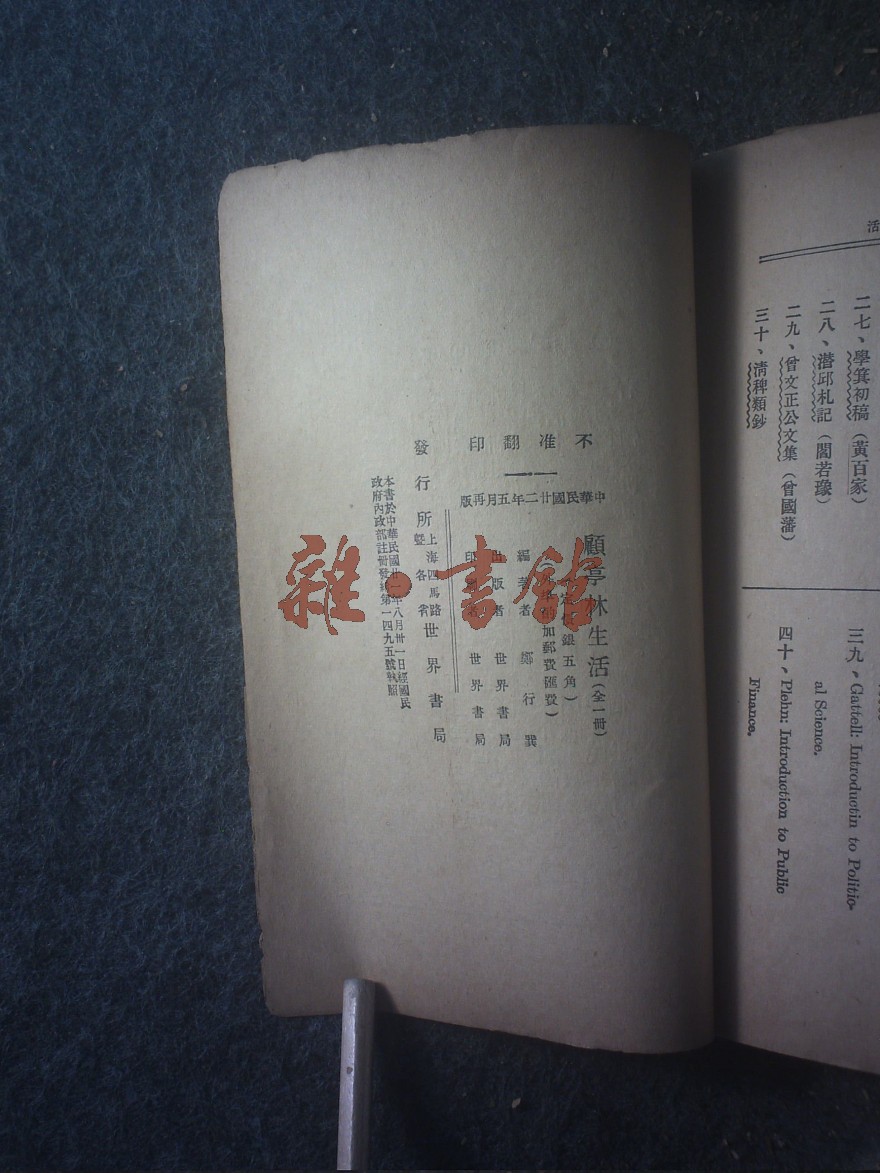 活
二七、學箕初稿(黃百家)
二八、潛邱札記(閻若璩)
二九、曾文正公文集(曾國藩)
三十、清稗類鈔
三九、Gattell: Introductin to Politio-
al Science.
四十、Plehn: Introduction to Public
Finance.
不准翻印
中華民國廿二年五月再版
顧亭林生活(全一冊)
銀五角)
加郵費匯費)
編著者 鄭行巽
出版者 世界書局
印 世界書局
發行所 上海四馬路暨各省 世界書局
本書於中華民國廿一年八月卅一日經國民
政府內政部註冊發給第一四九五號執照
雜·書館